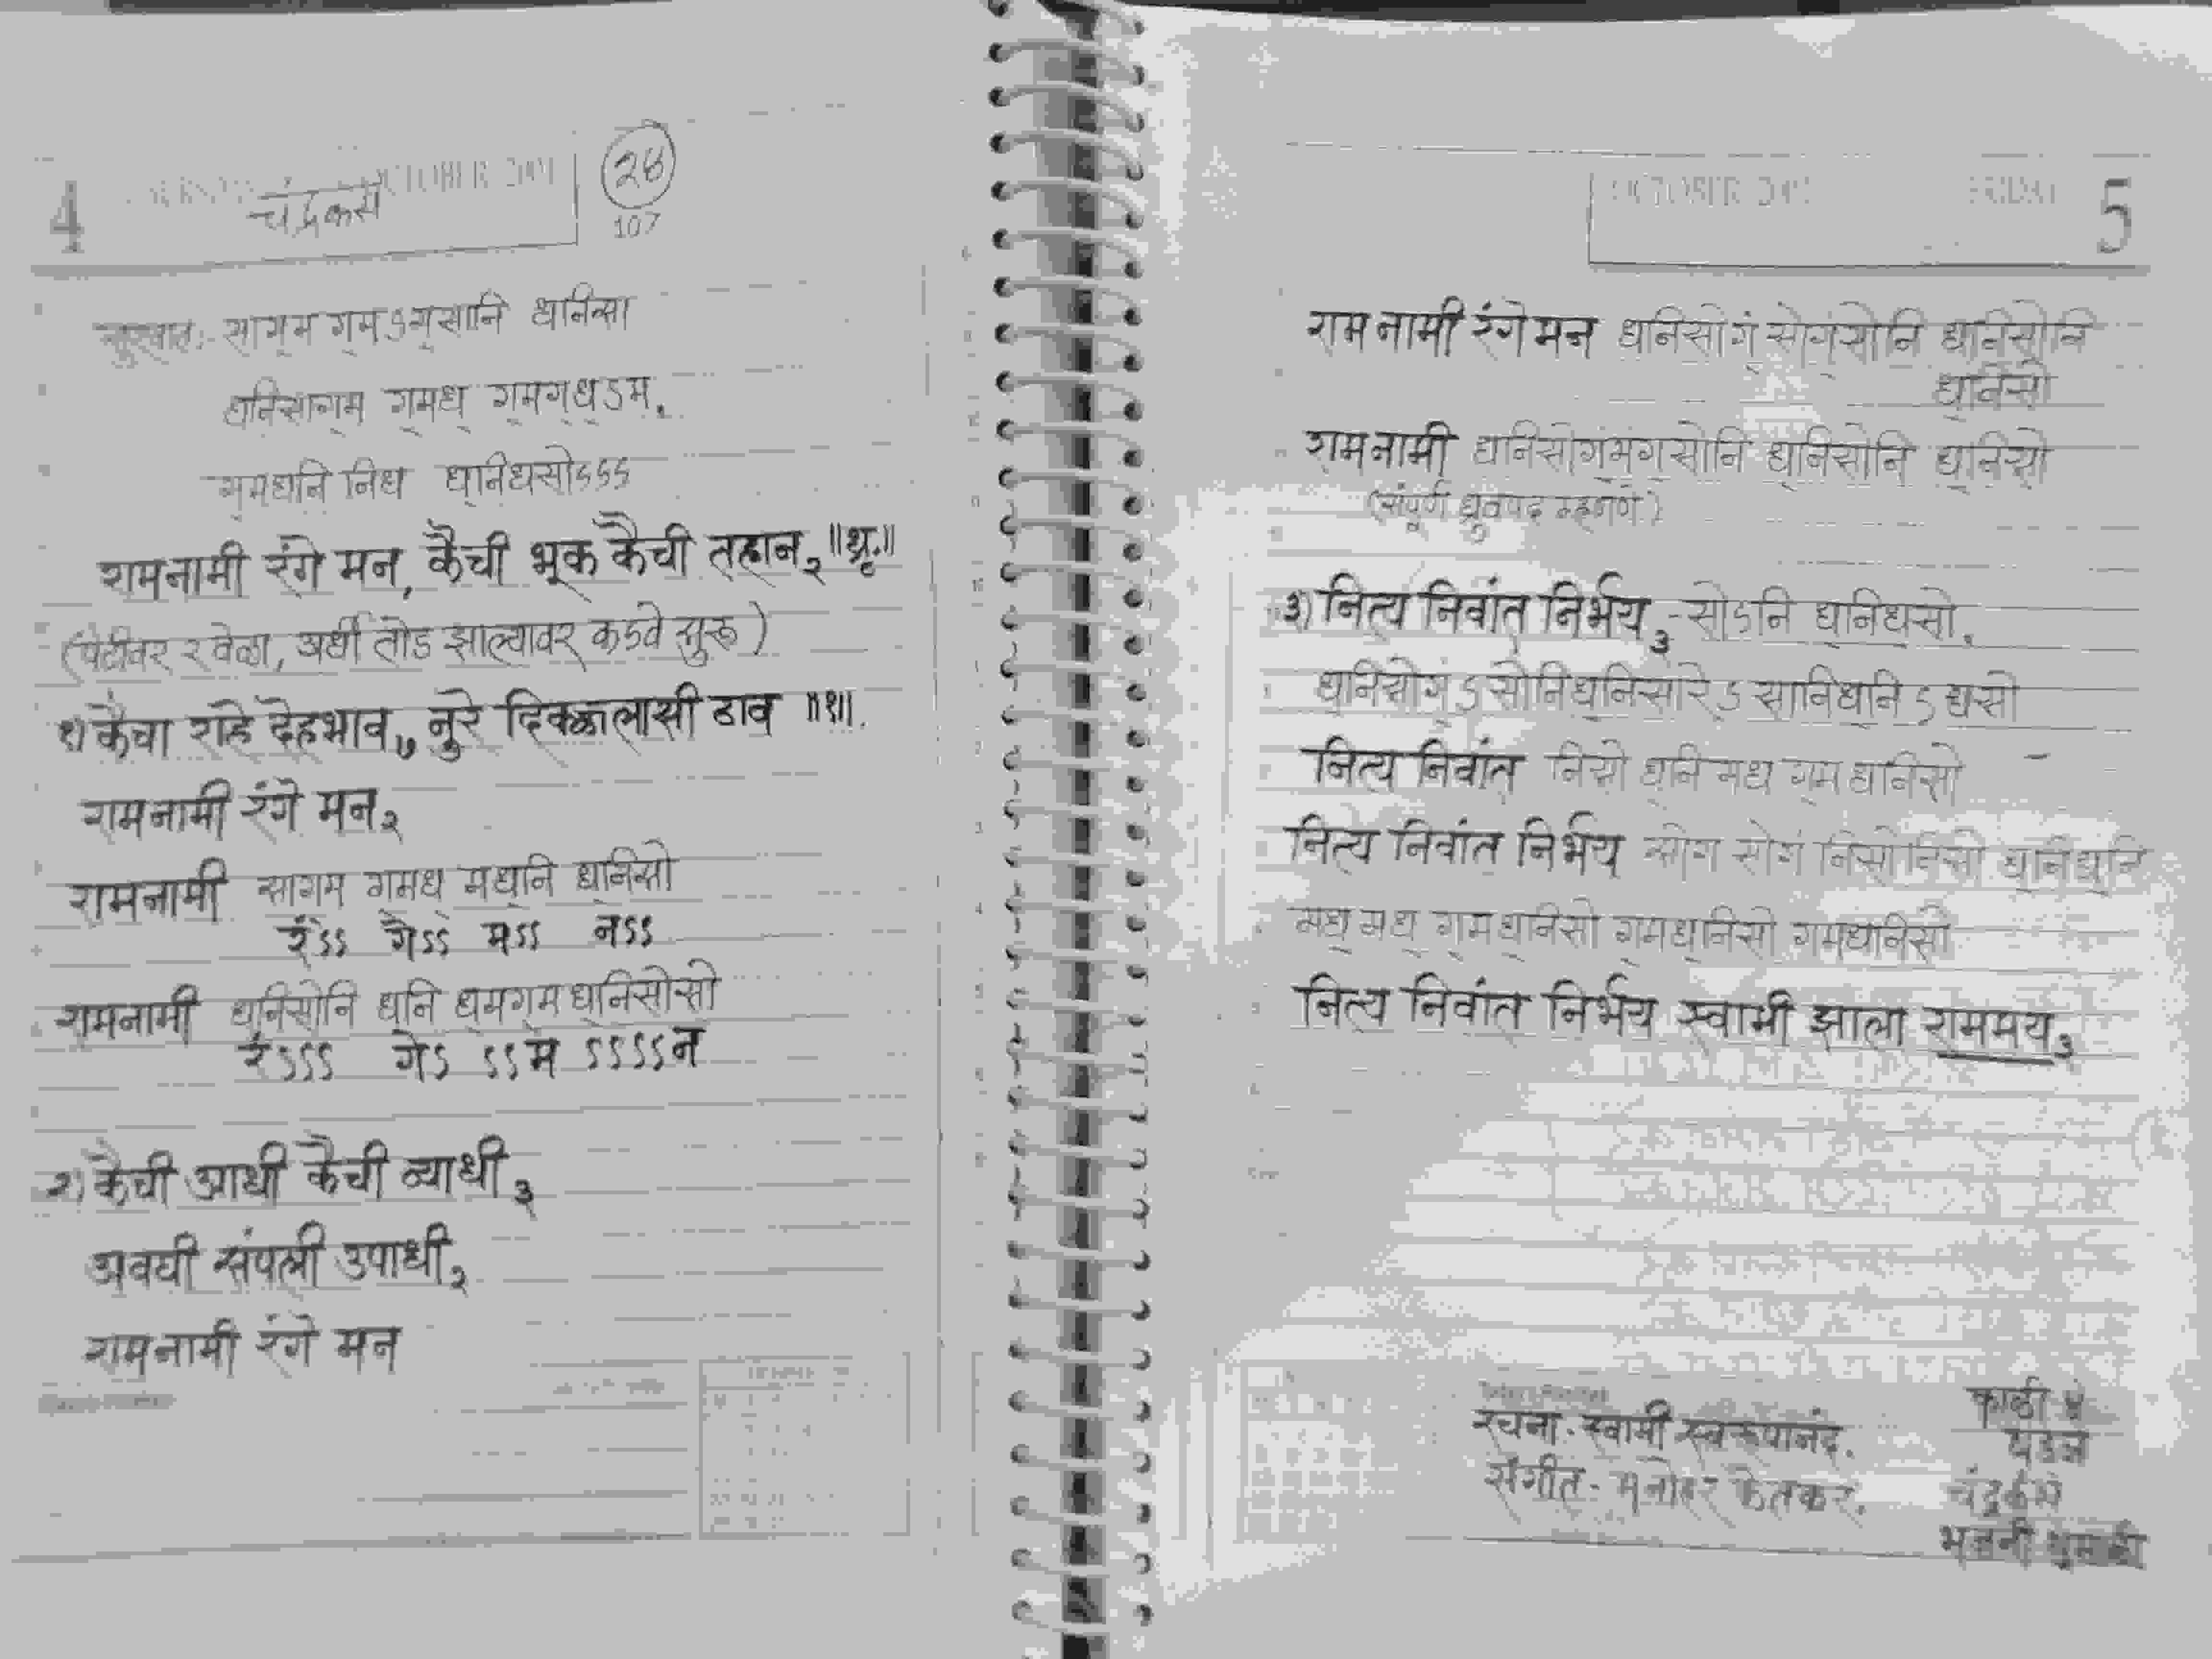 4
चंद्रकंस
28
107
सुरुवात:- साग॒म ग॒मऽग॒सानि ध॒निसा
ध॒निसाग॒म ग॒मध॒ ग॒मग॒ध॒ऽम.
ग॒मध॒नि निध॒ ध॒निध॒सोऽऽऽ
रामनामी रंगे मन, कैची भूक कैची तहान२ ॥धृ.॥
(पेटीवर २ वेळा, अर्धी तोड झाल्यावर कडवे सुरू)
१) कैचा राहे देहभाव, नुरे दिक्कालासी ठाव ॥१॥.
रामनामी रंगे मन२
रामनामी साग॒म ग॒मध॒ मध॒नि ध॒निसो
रंऽऽ गेऽऽ मऽऽ नऽऽ
रामनामी ध॒निसोनि ध॒नि ध॒मग॒म ध॒निसोसो
रंऽऽऽ गेऽ ऽऽम ऽऽऽऽन
२) कैची आधी कैची व्याधी३
अवघी संपली उपाधी२
रामनामी रंगे मन
OCTOBER 2001 FRIDAY 5
रामनामी रंगे मन ध॒निसोग॒ं सोग॒ंसोनि ध॒निसोनि
ध॒निसो
रामनामी ध॒निसोग॒ंमंग॒ंसोनि ध॒निसोनि ध॒निसो
(संपूर्ण ध्रुवपद म्हणणे)
३) नित्य निवांत निर्भय३ - सोऽनि ध॒निध॒सो.
ध॒निसोग॒ंऽ सोनिध॒निसारेऽ सानिध॒निऽ ध॒सो
नित्य निवांत निसो ध॒नि मध॒ ग॒म ध॒निसो
नित्य निवांत निर्भय सोग॒ं सोग॒ं निसोनिसो ध॒निध॒नि
मध॒ मध॒ ग॒मध॒निसो ग॒मध॒निसो ग॒मध॒निसो
नित्य निवांत निर्भय स्वामी झाला राममय३
रचना - स्वामी स्वरूपानंद.
संगीत - मनोहर केतकर.
काळी ५
चंद्रकंस
भजनी धुमाळी